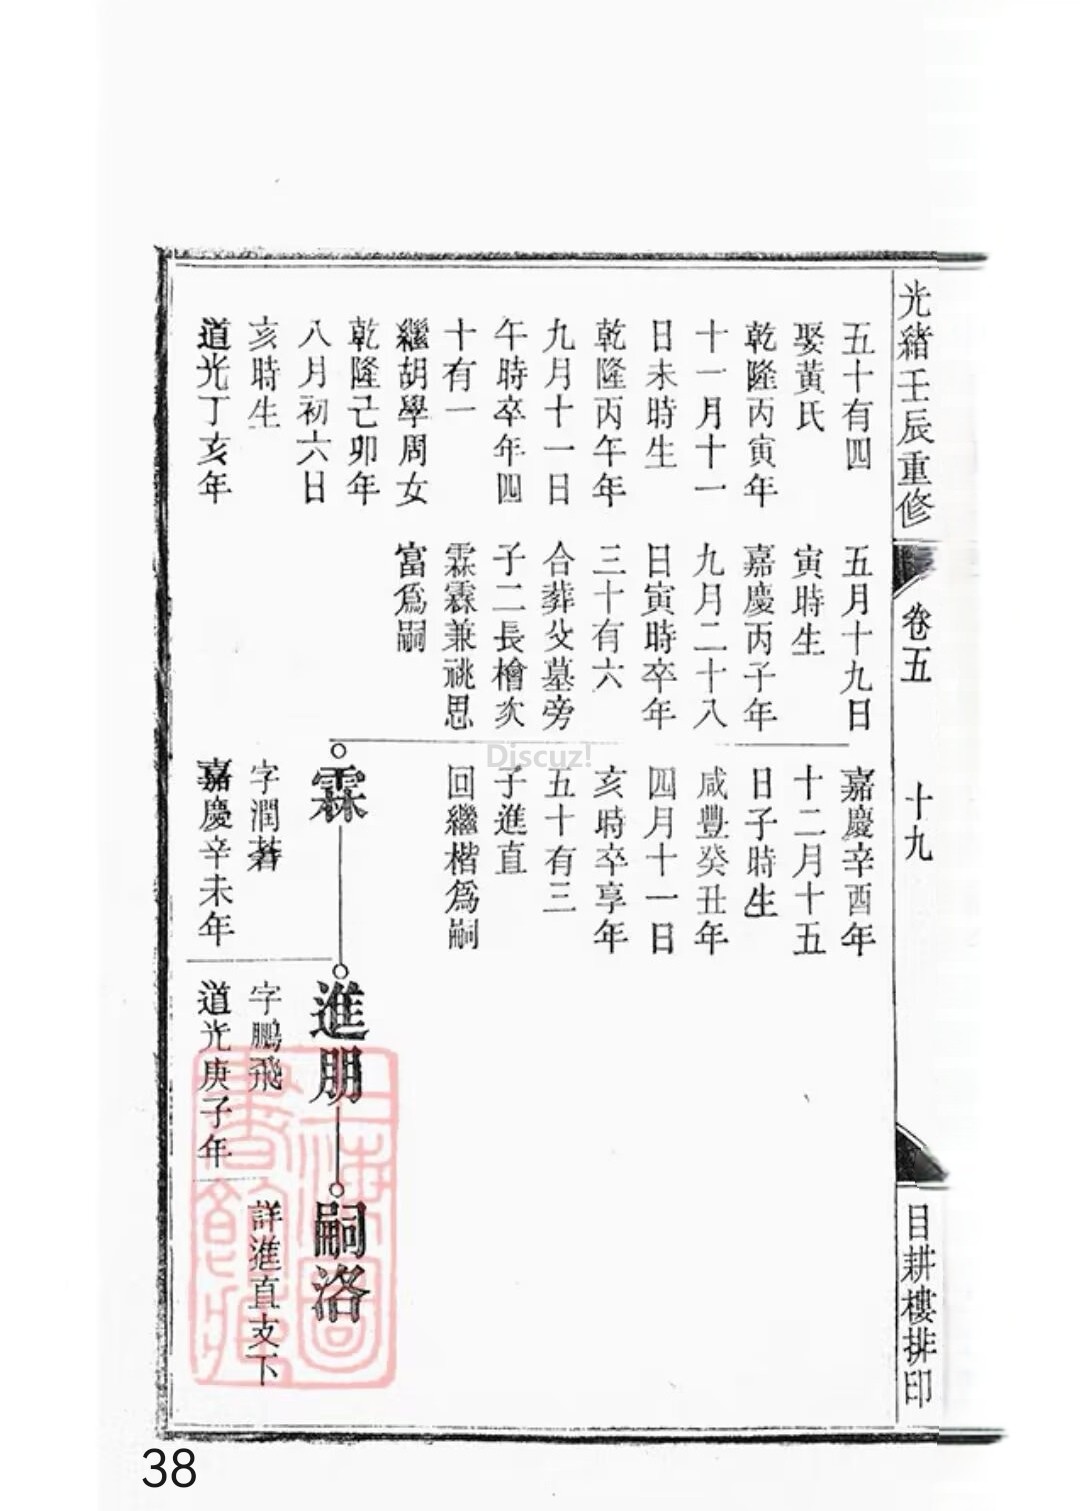 光緒壬辰重修
卷五
十九
目耕樓排印
五十有四
娶黃氏
乾隆丙寅年
十一月十一
日未時生
乾隆丙午年
九月十一日
午時卒年四
十有一
繼胡學周女
乾隆己卯年
八月初六日
亥時生
道光丁亥年
五月十九日
寅時生
嘉慶丙子年
九月二十八
日寅時卒年
三十有六
合葬父墓旁
子二長檜次
霖霖兼祧思
富爲嗣
嘉慶辛酉年
十二月十五
日子時生
咸豐癸丑年
四月十一日
亥時卒享年
五十有三
子進直
回繼楷爲嗣
霖
字潤蒼
嘉慶辛未年
進朋
字鵬飛
道光庚子年
嗣洛
詳進直支下
上海圖
書館藏
Discuz!
38